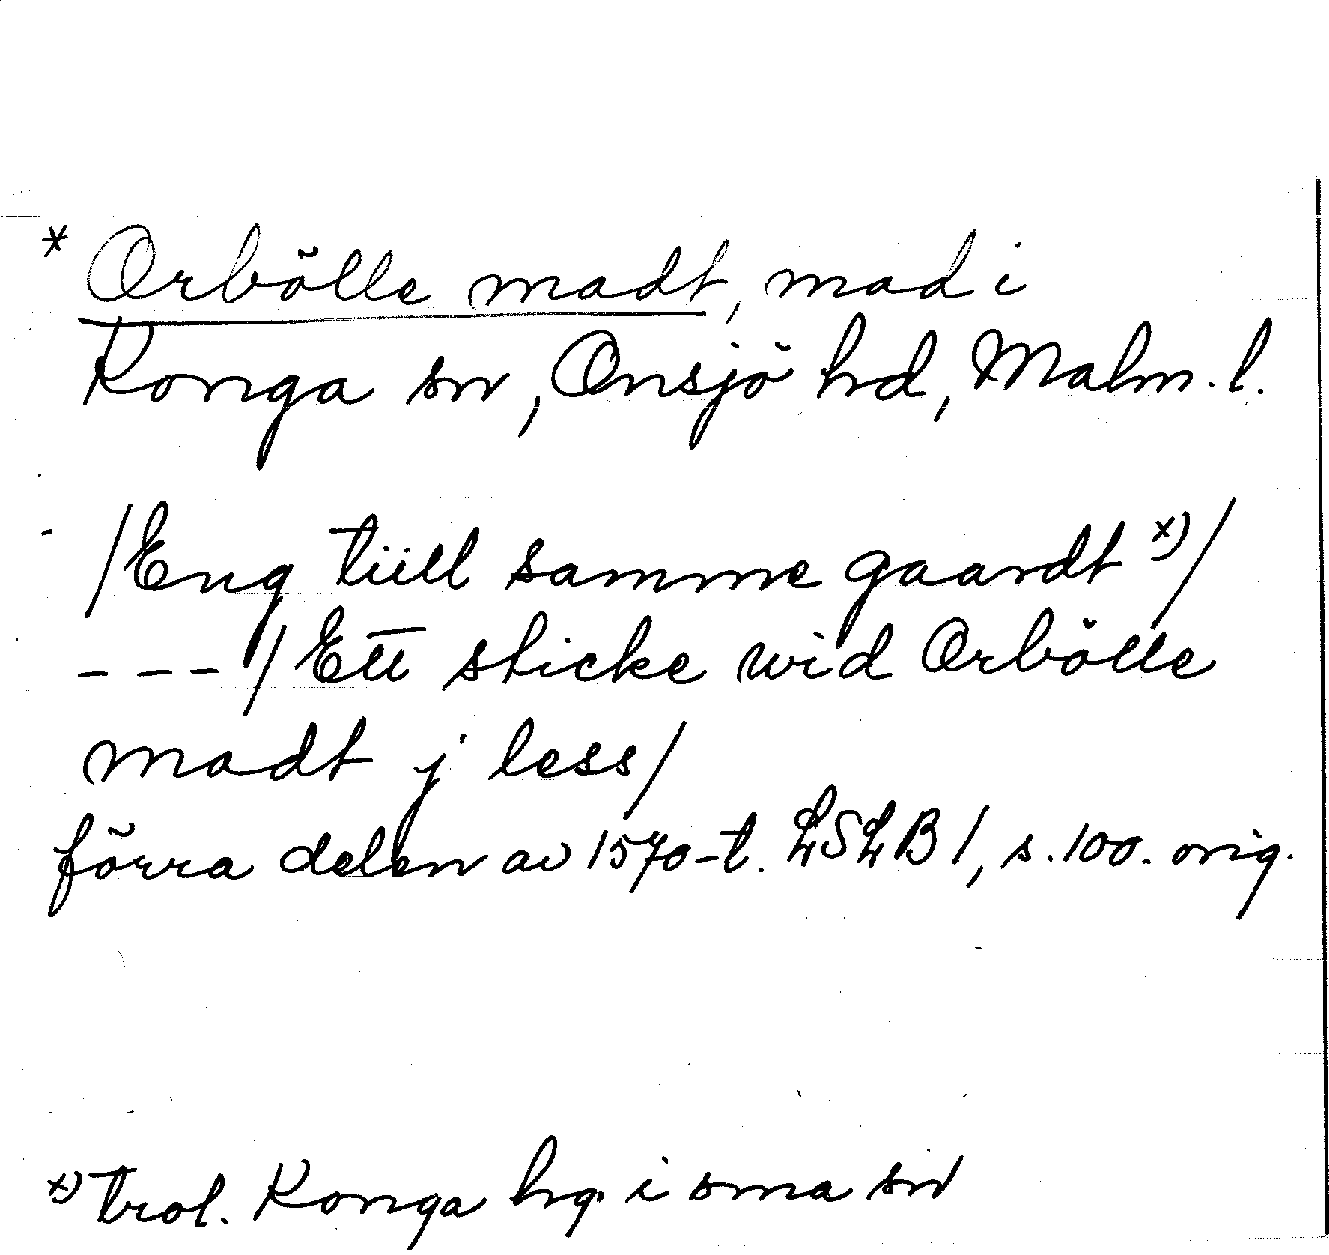 * Orbölle madt, mad i
Konga sn, Onsjö hd, Malm. l.
/Eng tiill samme gaardt x)/
- - - / Ett sticke wid Orbölle
madt j less/
förra delen av 1570-t. LSLB 1, s. 100. orig.
x) trol. Konga hg. i sma sn